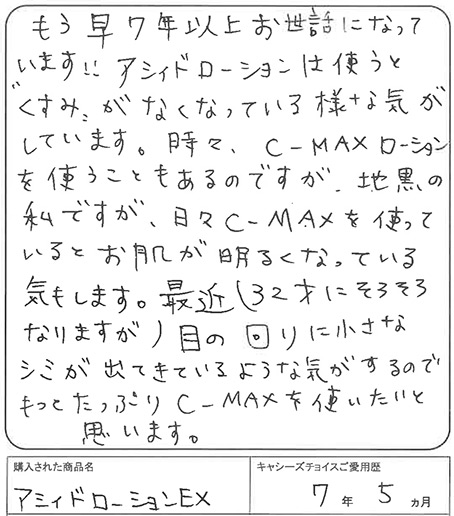 もう早7年以上お世話になって
います!! アシィドローションは使うと
"くすみ"がなくなっている様な気が
しています。時々、C-MAXローション
を使うこともあるのですが、地黒の
私ですが、日々C-MAXを使って
いるとお肌が明るくなっている
気もします。最近(32才にそろそろ
なりますが)目の回りに小さな
シミが出てきているような気がするので
もっとたっぷりC-MAXを使いたいと
思います。
購入された商品名
アシィドローションEX
キャシーズチョイスご愛用歴
7年5ヵ月